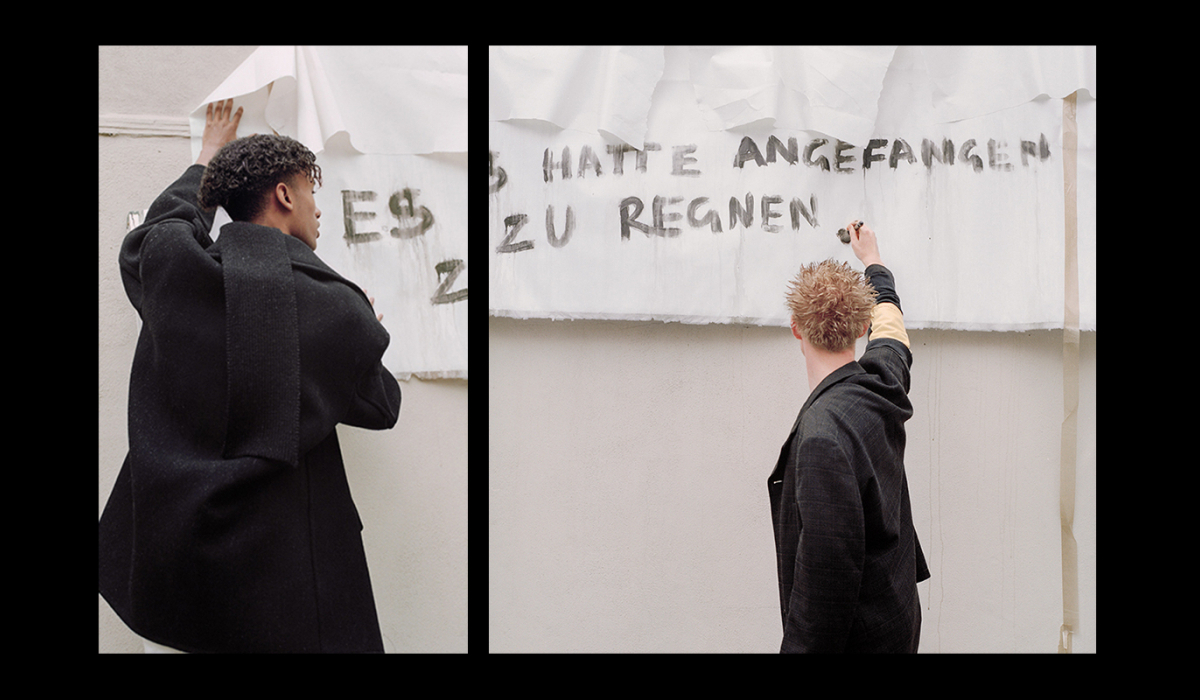 ES
Z
S HATTE ANGEFANGEN
ZU REGNEN